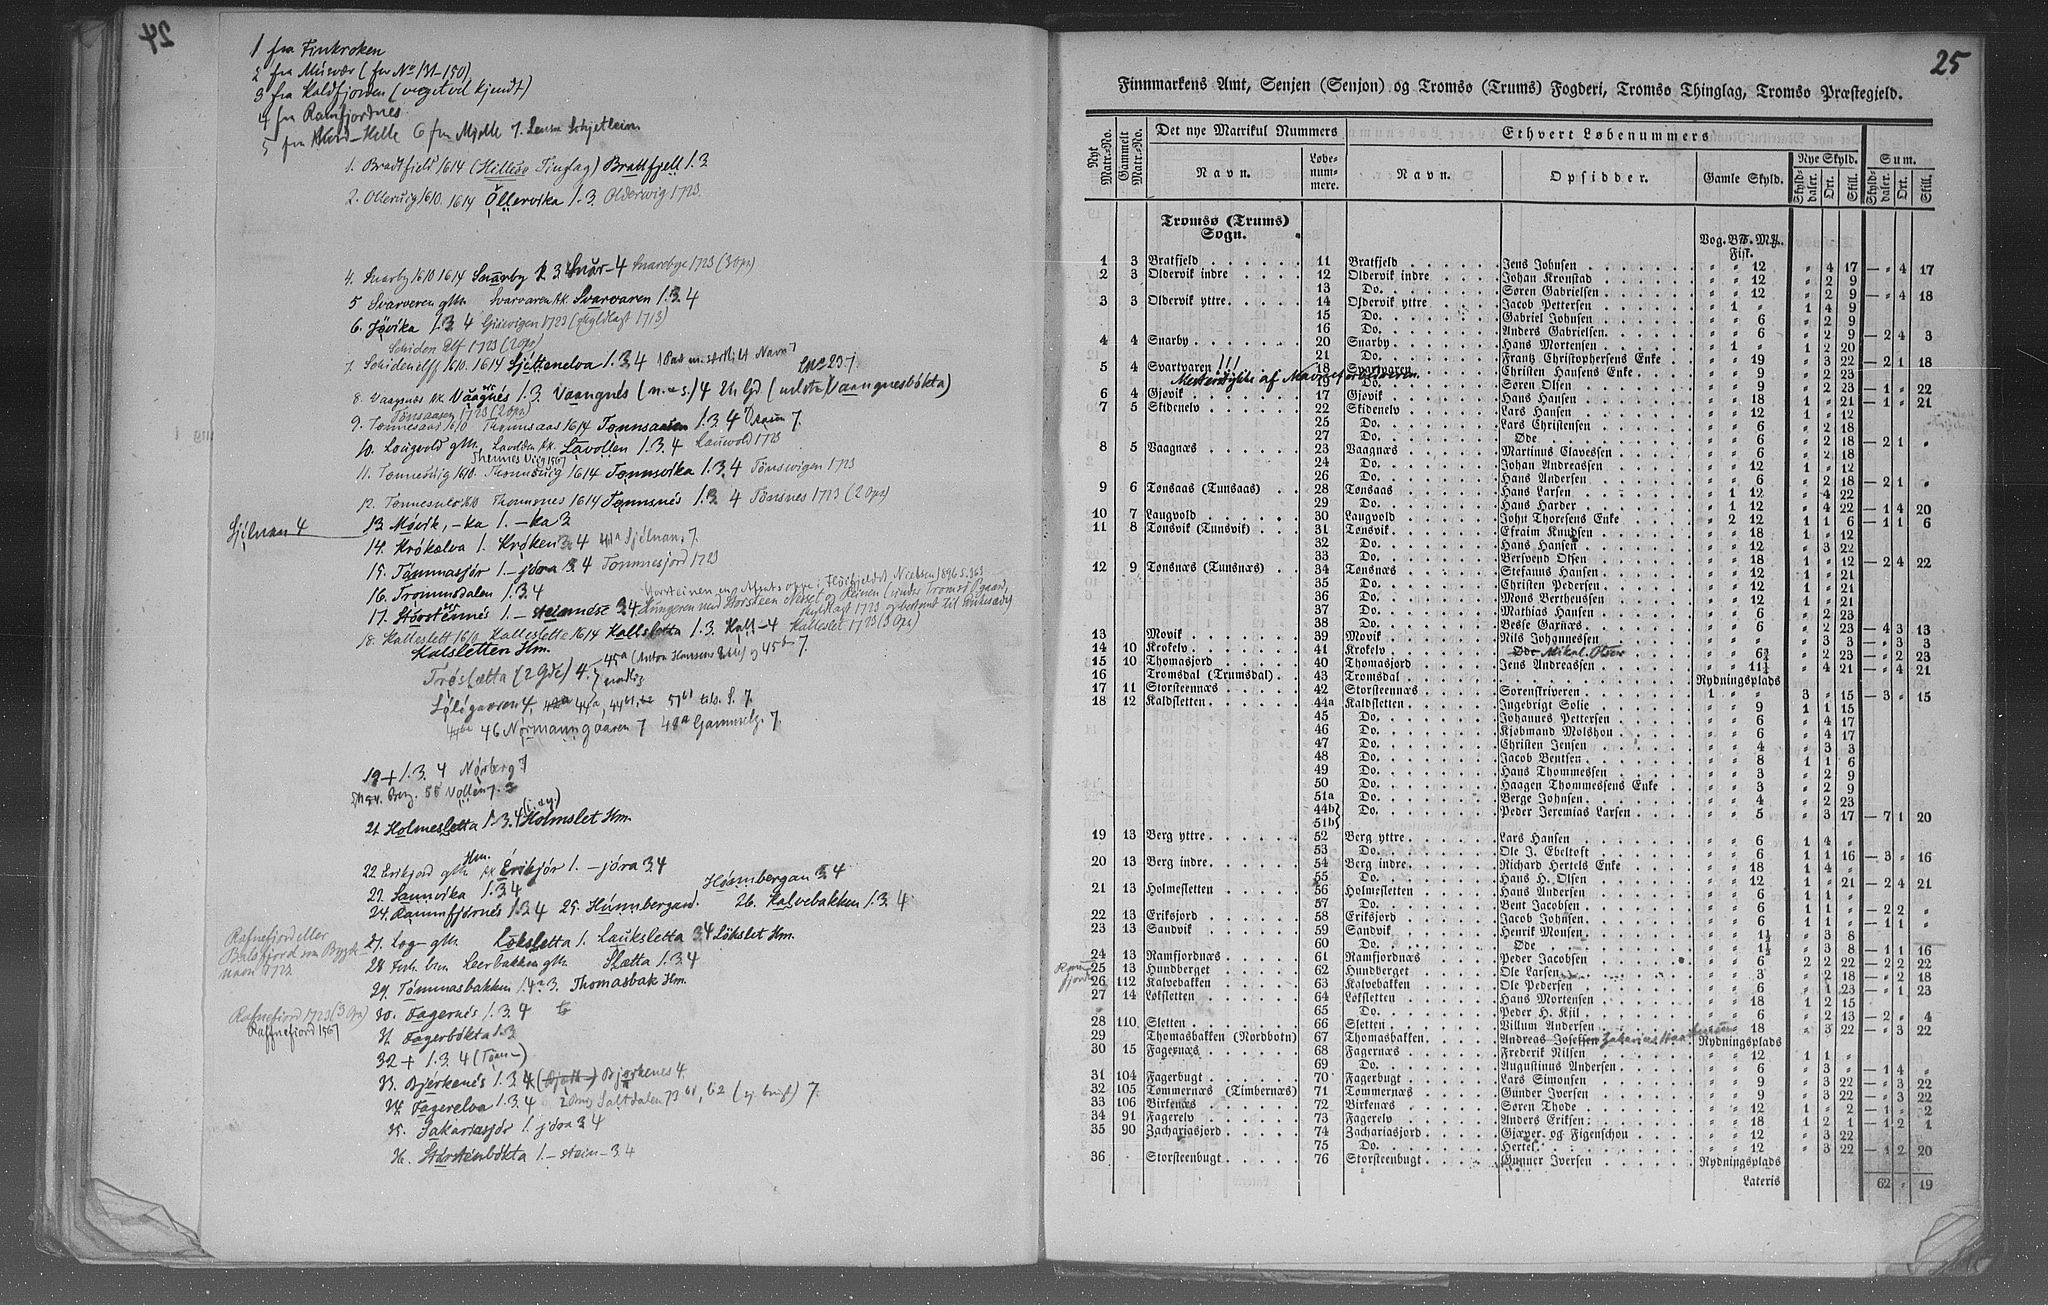 24
1 fra Finkroken
2 fra Musvær (for No 131-150)
3 fra Kaldfjorden (meget vel kjendt)
4 fra Ramfjordnes
5 fra Nord-Helle 6 fra Mjelle 7. Lensm. Schjetlein
1. Bradtfield 1614 (Hillesø Tinglag) Brattfjell 1.3
2. Olleruig 1610. 1614 Ollervika 1.3. Olderwig 1723.
4. Snarby 1610 1614 Snarby k 3. Snár-4 Snarebye 1723 (3 Opr)
5 Svarveren gMn Svarvaren kk. Svarvaren 1.3.4
6. Jövika 1.3. 4 Giæwigen 1723 (skyldlagt 1713)
Schiden Elf 1723 (2 Opr)
7. Schidenelff 1610. 1614 Sjittenelva 1.3.4
8. Vaagnæs kk. Vaagnés 1.3. Vaangnés (m. a s.) 4
Tønsaasen 1723 (2 Opr)
9. Tønnesaas 1610 Thonnsaas 1614 Tonnsaasen 1.3.4
10. Lougvold gMn. Lavolden kk. Lavollen 1.3.4 Lauwold 1723
Thennes Viig 1567
11. Tonnesuiig 1610. Thonnsuiig 1614 Tonnsvika 1.3.4 Tönswigen 1723
12. Tonnesnes 1610 Thonsnes 1614 Tonnsnés 1.3. 4 Tönsnes 1723 (2 Opr)
13. Movik, -ka 1. -ka 3
Sjelnan 4
14. Krokælva 1. Krøken 3.4 41a Sjélnan. 7.
15. Tommasfjór 1. -jóra 3.4 Tommesjord 1723
16. Trommsdalen 1.3.4
17. Storstennés 1. -steinnése 3.4
18. Kalleslett 1610 Kalleslette 1614 Kallsletta 1.3. Kall-4 Kalleslet 1723 (3 Opr)
Kalsletten Hm.
Trøsletta (2 Gde) 4. 45a (Anton Hansens Enke) og 45b 7.
46 Normanngaaren 7 48a Gammelg. 7.
19 + 1.3. 4 Nørberg 7
21 Holmesletta 1.3.4 Holmslet Hm.
22 Erikjord gMn kk Erikjór 1. -jóra 3.4
23. Sannvika 1.3.4
Hunnbergan 3.4
24. Rammfjornés 1.3.4 25. Hunnbergan 1. 26. Kalvebakken 1.3.4
Rafnefjord eller
Balsfjord som Bygde
navn 1723.
27. Løg- gMn. Løksletta 1. Lauksletta 3.4 Løkslet Hm.
28 Leerbakken gMn Slætta 1.3.4
29. Tommasbakken 1.4a 3. Thomasbak Hm.
Rafnefiord 1723 (3 Opr)
Raffnefiord 1567
30. Fagernés 1.3.4
31. Fagerbokta 1.3
32 + 1.3.4 (Tom-)
33. Bjerkenés 1.3.4 Bjorkenes 4.
34. Fagerelva 1.3.4 Saltdalen 73 7.
35. Sakariasfjór 1. jóra 3.4
36. Storstenbokta 1. -stein- 3.4
25
Finnmarkens Amt, Senjen (Senjon) og Tromsø (Trums) Fogderi, Tromsø Thinglag, Tromsø Præstegjeld.
Nyt Matr.-No. Gammelt Matr.-No. Det nye Matrikul Nummers Ethvert Løbenummers
Navn. Løbe-nummere. Navn. Opsidder. Gamle Skyld. Nye Skyld. Sum.
Skylddaler. Ort. Skill. Skylddaler. Ort. Skill.
Tromsø (Trums)
Sogn.
Vog. B℔. Mk. Fisk.
1 3 Bratfjeld 11 Bratfjeld Jens Johnsen " " 12 " 4 17 — " 4 17
2 3 Oldervik indre 12 Oldervik indre Johan Kronstad " " 12 " 2 9
13 Do. Søren Gabrielsen " " 12 " 2 9 — " 4 18
3 3 Oldervik yttre 14 Oldervik yttre Jacob Pettersen " 1 " 1 4 9
15 Do. Gabriel Johnsen " " 6 " 2 9
16 Do. Anders Gabrielsen " " 6 " 2 9 — 2 4 3
4 4 Snarby 20 Snarby Hans Mortensen " 1 " 1 2 20
21 Do. Frantz Christophersens Enke " " 19 " 3 22 — 2 1 18
5 4 Svartvaren !!! 18 Svartvaren Christen Hansens Enke " " 9 " 2 23
Mesterstykke af Navneforbedreren.
19 Do. Søren Olsen " " 9 " 2 23 — 1 " 22
6 4 Gjøvik 17 Gjøvik Hans Hansen " " 18 1 " 21 — 1 " 21
7 5 Skidenelv 22 Skidenelv Lars Hansen " " 12 1 " 12
25 Do. Lars Christensen " " 6 " 2 18
27 Do. Øde " " 6 " 2 18 — 2 1 "
8 5 Vaagnæs 23 Vaagnæs Martinus Clavessen " " 6 " 2 18
24 Do. Johan Andreassen " " 12 1 " 12
26 Do. Hans Andersen " " 6 " 2 18 — 2 1 "
9 6 Tønsaas (Tunsaas) 28 Tønsaas Hans Larsen " 1 12 " 4 22
29 Do. Hans Harder " 1 12 " 4 22 — 1 4 20
10 7 Laugvold 30 Laugvold John Thoresens Enke " 2 12 1 1 6 — 1 1 6
11 8 Tonsvik (Tunsvik) 31 Tonsvik Efraim Knudsen " " 18 1 " 12
32 Do. Hans Hansen " " 12 " 3 22
33 Do. Berfvend Olsen " " 18 1 " 12 — 2 4 22
12 9 Tønsnæs (Tunsnæs) 34 Tønsnæs Stefanus Hansen " " 12 1 " 21
35 Do. Christen Pedersen " " 12 1 " 21
36 Do. Mons Bertheussen " " 12 1 " 21
37 Do. Mathias Hansen " " 6 " 2 23
38 Do. Besse Garnæs " " 6 " 2 23 — 4 3 13
13 Movik 39 Movik Nils Johannessen " " 3 " 3 3 — " 3 3
14 10 Krokelv 41 Krokelv Øde Mikal Olsen " " 6¾ " 2 23 — " 2 23
15 10 Thomasjord 40 Thomasjord Jens Andreassen " " 11¼ " 4 21 — " 4 21
16 Tromsdal (Trumsdal) 43 Tromsdal Rydningsplads
17 11 Storsteennæs 42 Storsteennæs Sorenskriveren 1 " " 3 " 15 — 3 " 15
18 12 Kaldsletten 44a Kaldsletten Ingebrigt Solie " " 9 1 1 15
45 Do. Johannes Pettersen " " 6 " 4 17
46 Do. Kjøbmand Molshou " " 6 " 4 17
47 Do. Christen Jensen " " 4 " 3 3
48 Do. Jacob Bentsen " " 8 1 1 6
49 Do. Hans Thommessen " " 3 " 2 9
50 Do. Haagen Thommessens Enke " " 3 " 2 9
51a Do. Berge Johnsen " " 4 " 2 23
44b} 51b} Do. Peder Jeremias Larsen " " 5 " 3 17 — 7 1 20
19 13 Berg yttre 52 Berg yttre Lars Hansen " " 6 1 4 "
53 Do. Ole J. Ebeltoft " " 6 1 1 16 — 3 " 16
20 13 Berg indre 54 Berg indre Richard Hertels Enke " " 18 1 4 "
55 Do. Hans H. Olsen " " 12 1 " 21 — 2 4 21
21 13 Holmesletten 56 Holmesletten Hans Andersen " " 6 1 1 "
57 Do. Bent Jacobsen " " 6 1 1 " — 2 2 "
22 13 Eriksjord 58 Eriksjord Jacob Johnsen " " 6 1 1 " — 1 1 "
23 13 Sandvik 59 Sandvik Henrik Monsen " " 1½ " 3 8
60 Do. Øde " " 1½ " 3 8 — 1 1 16
24 13 Ramfjordnæs 61 Ramfjordnæs Peder Jacobsen " " 6 2 2 22 — 2 2 22
25 13 Hundberget 62 Hundberget Ole Larsen " " 3 " 2 18 — " 2 18
26 112 Kalvebakken 63 Kalvebakken Ole Pedersen " " 6 " 1 23 — " 1 23
27 14 Løksletten 64 Løksletten Hans Mortensen " " 18 1 2 15
65 Do. Peder H. Kjil " " 6 " 2 13 — 2 " 4
28 110. Sletten 66 Sletten Villum Andersen " " 18 " 3 22 — " 3 22
29 Thomasbakken (Nordbotn) 67 Thomasbakken Andreas Josefsen Zakarias Rydningsplads
30 15 Fagernæs 68 Fagernæs Frederik Nilsen " " 12 1 1 "
69 Do. Augustinus Andersen " " 6 " 3 " — 1 4 "
31 104 Fagerbugt 70 Fagerbugt Lars Simonsen " " 9 " 3 22 — " 3 22
32 105 Tommernæs (Timbernæs) 71 Tømmernæs Gunder Iversen " " 9 " 3 22 — " 3 22
33 106 Birkenæs 72 Birkenæs Søren Thode " " 12 1 " 2 — 1 " 2
34 91 Fagerelv 73 Fagerelv Anders Eriksen " " 18 1 2 1 — 1 2 1
35 90 Zachariasjord 74 Zachariasjord Gjæver og Figenschou " " 12 " 3 22
75 Do. Hertel " " 12 " 3 22 — 1 2 20
36 Storsteenbugt 76 Storsteenbugt Gunner Iversen Rydningsplads
Lateris 62 " 19